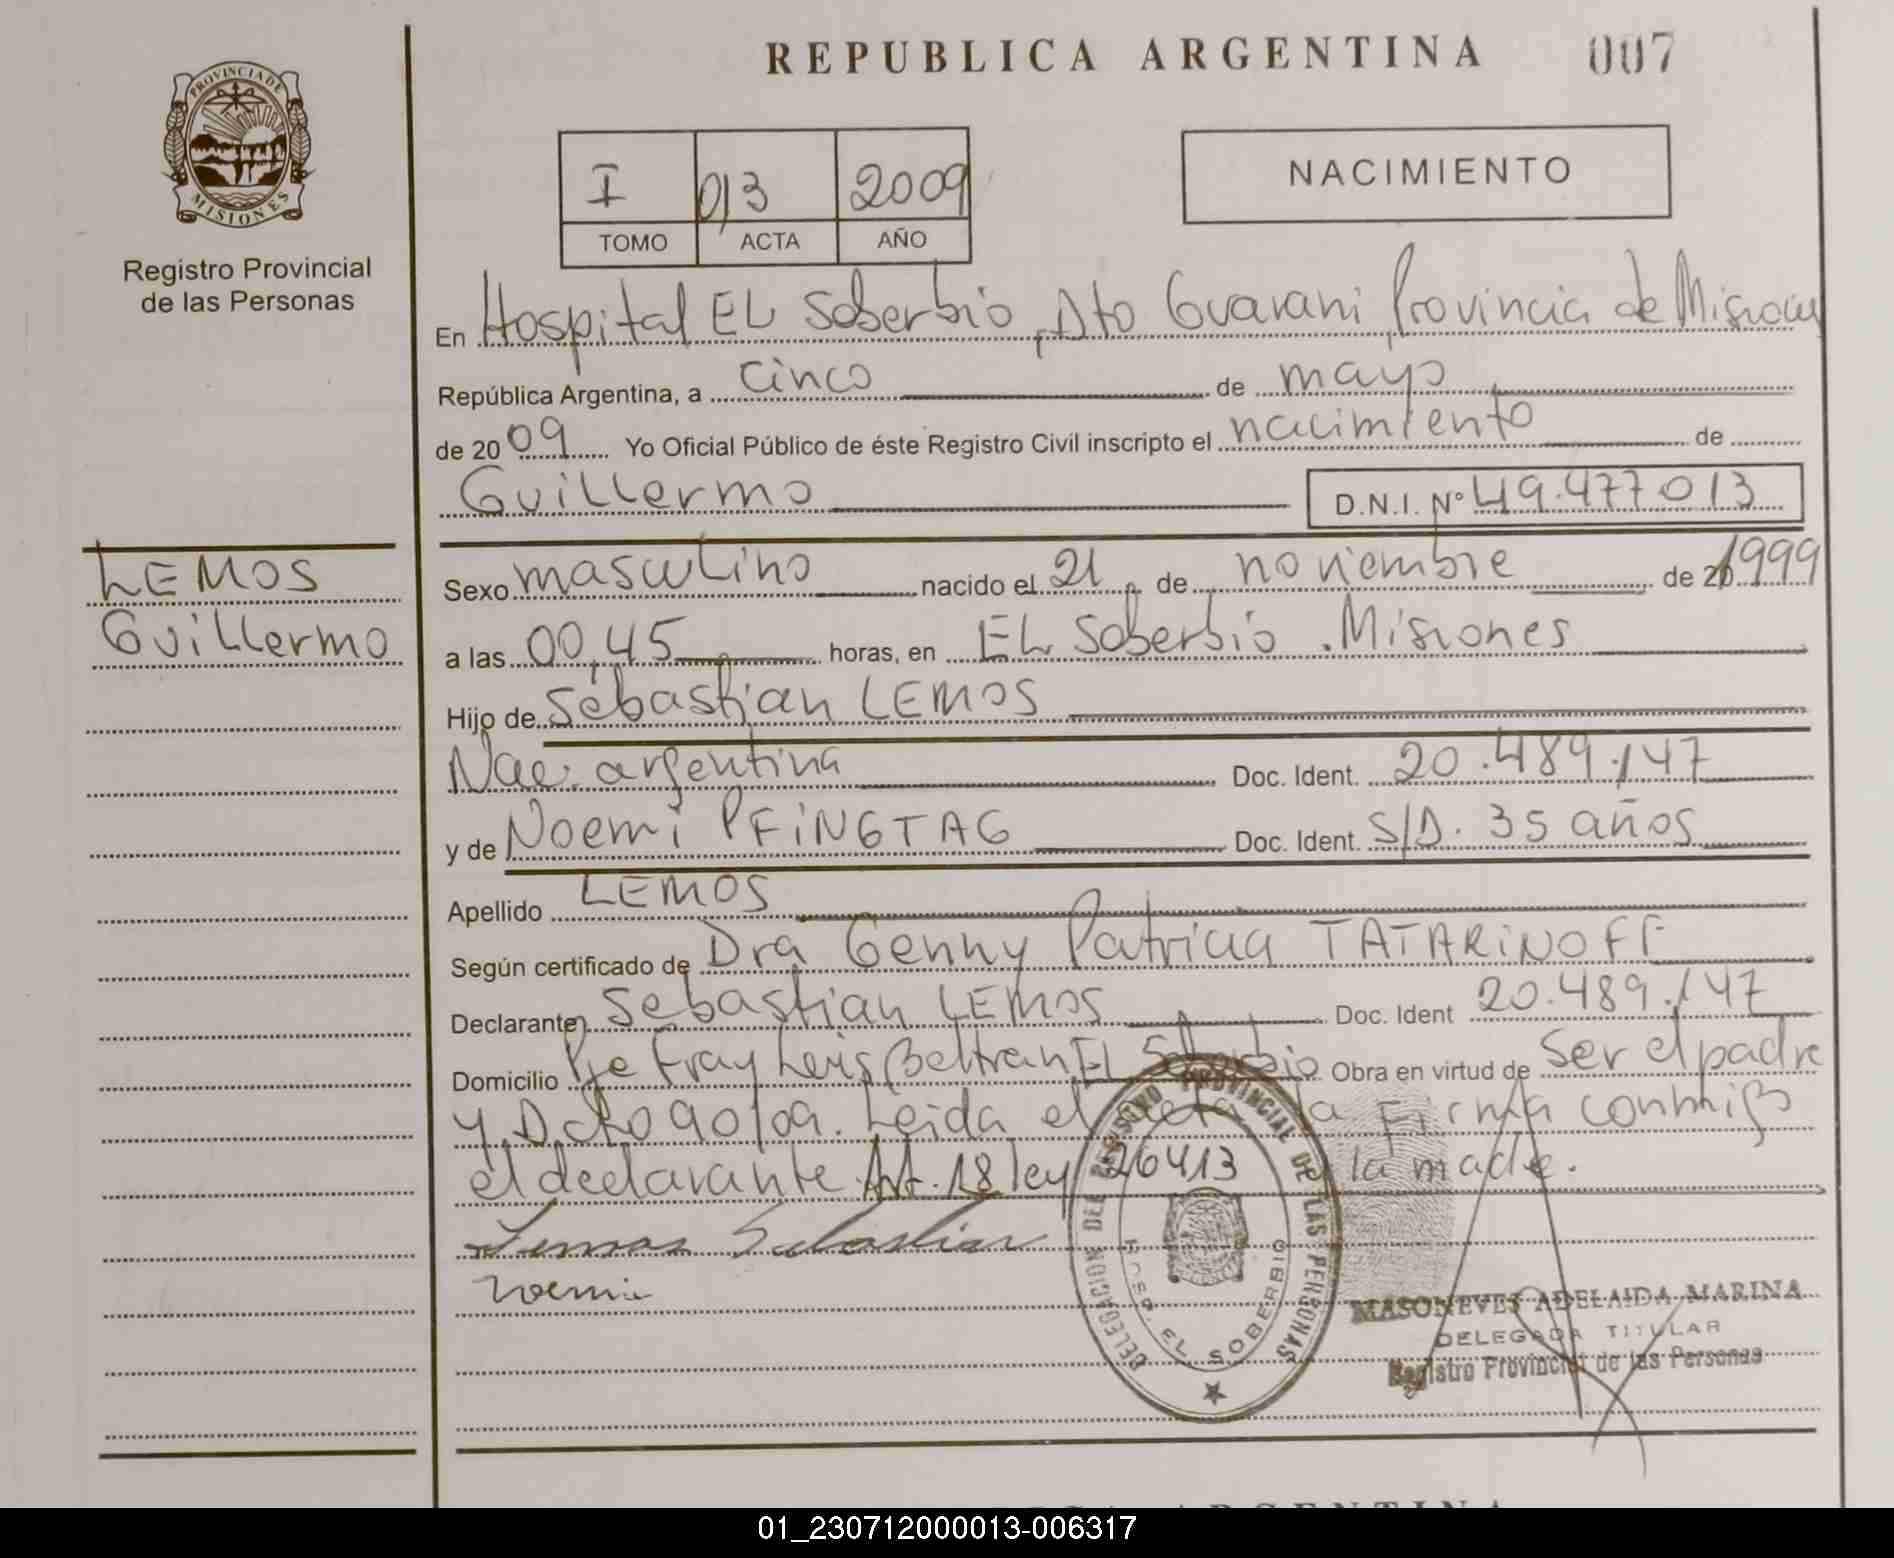 REPUBLICA ARGENTINA 007
PROVINCIA DE MISIONES
Registro Provincial
de las Personas
I 013 2009
TOMO ACTA AÑO
NACIMIENTO
En Hospital EL Soberbio, Dto Guarani Provincia de Misiones
República Argentina, a cinco de mayo
de 2009 Yo Oficial Público de éste Registro Civil inscripto el nacimiento de
Guillermo D.N.I. Nº 49.477.013
LEMOS
Guillermo
Sexo masculino nacido el 21 de noviembre de 1999
a las 00,45 horas, en EL Soberbio . Misiones
Hijo de Sebastian LEMOS
Nac. argentina Doc. Ident. 20.489.147
y de Noemi PFINGTAG Doc. Ident. S/D. 35 años
Apellido LEMOS
Según certificado de Dra Genny Patricia TATARINOFF
Declarante Sebastian LEMOS Doc. Ident 20.489.147
Domicilio Pje Fray Luis Beltran EL Soberbio Obra en virtud de Ser el padre
y Dcto 90/09. Leida el acta la Firma conmigo
el declarante Art. 18 ley 26413 y la madre.
Lemos Sebastian
Noemi
DELEGACION DEL REGISTRO PROVINCIAL DE LAS PERSONAS
EL SOBERBIO
MASONEVES ADELAIDA MARINA
DELEGADA TITULAR
Registro Provincial de las Personas
01_230712000013-006317